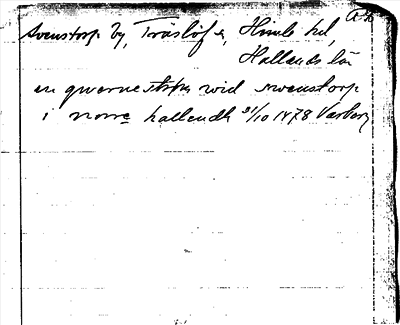 Svenstorp by, Träslöf s, Himle hd,
Hallands län
en qwarne strøm wid swenstorp
i norre hallendh 31/10 1478 Varberg